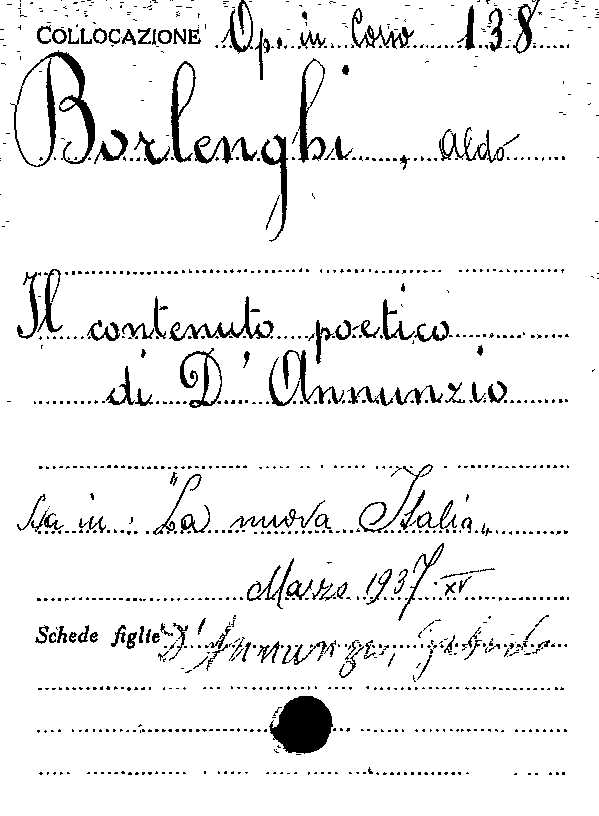 COLLOCAZIONE Op. in Corso 138
Borlenghi, Aldo
Il contenuto poetico
di D'Annunzio
Sta in: "La nuova Italia„
Marzo 1937-XV
Schede figlie D'Annunzio, Gabriele